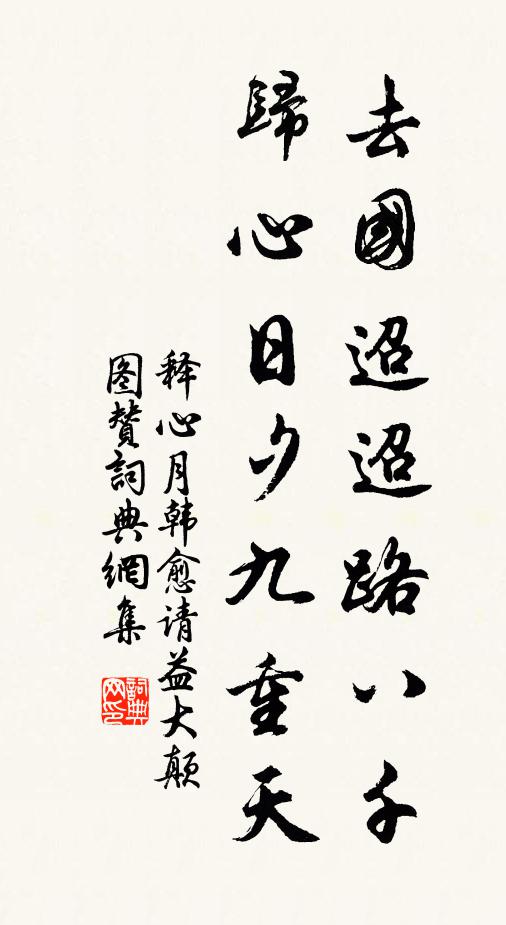 去國迢迢路八千
歸心日夕九重天
释心月韩愈请益大颠
图赞詞典網集
詞典
网印